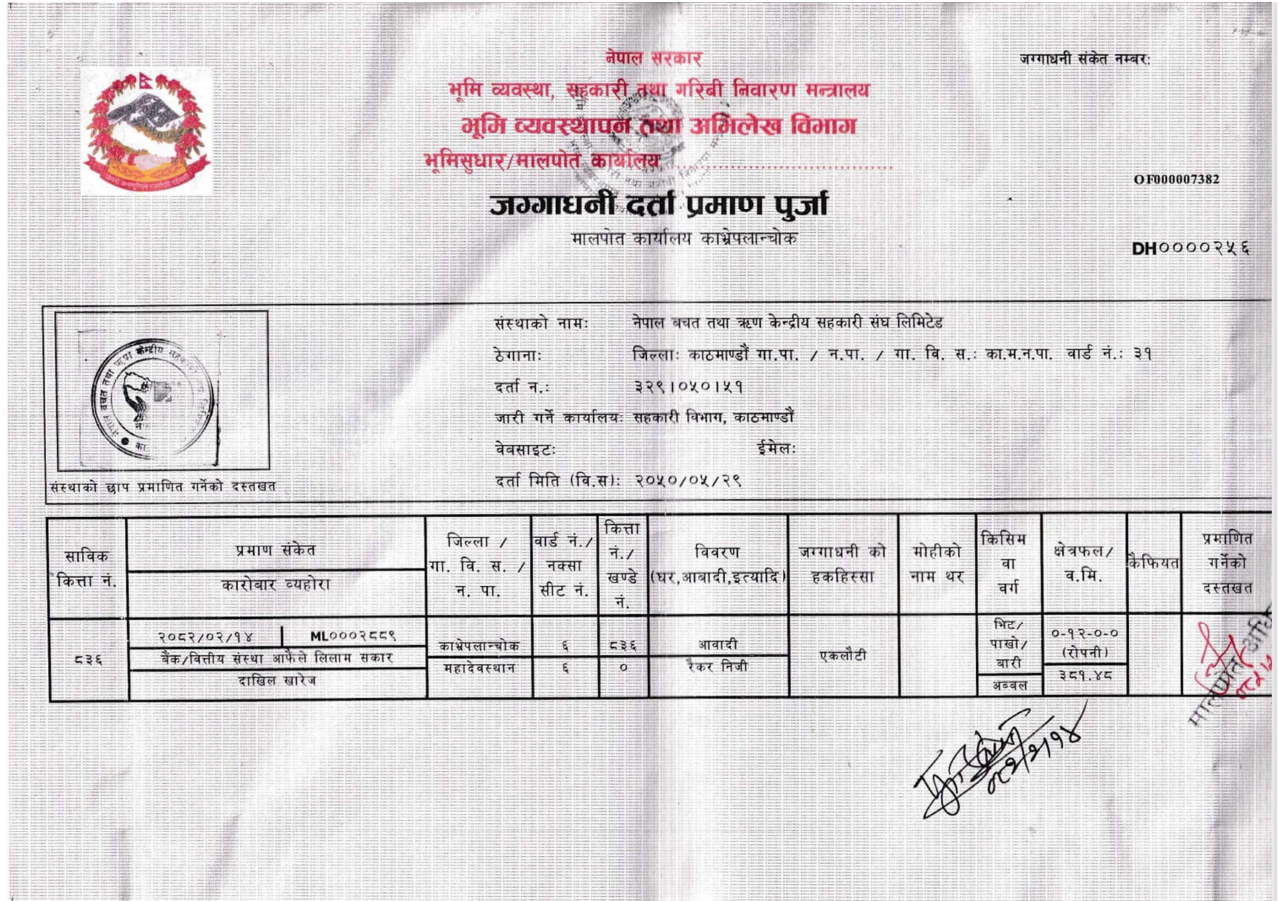 नेपाल सरकार
जग्गाधनी संकेत नम्बर:
भूमि व्यवस्था, सहकारी तथा गरिबी निवारण मन्त्रालय
भूमि व्यवस्थापन तथा अभिलेख विभाग
भूमिसुधार/मालपोत कार्यालय
OF000007382
जग्गाधनी दर्ता प्रमाण पुर्जा
मालपोत कार्यालय काभ्रेपलान्चोक
DH००००२५६
संस्थाको नाम: नेपाल बचत तथा ऋण केन्द्रीय सहकारी संघ लिमिटेड
ठेगाना: जिल्ला: काठमाण्डौं गा.पा. / न.पा. / गा. वि. स.: का.म.न.पा. वार्ड नं.: ३१
दर्ता न.: ३२९।०५०।५१
जारी गर्ने कार्यालय: सहकारी विभाग, काठमाण्डौं
वेवसाइट: ईमेल:
दर्ता मिति (वि.स): २०५०/०५/२९
संस्थाको छाप प्रमाणित गर्नेको दस्तखत
साविक कित्ता नं.
प्रमाण संकेत
कारोबार व्यहोरा
जिल्ला / गा. वि. स. / न. पा.
वार्ड नं./ नक्सा सीट नं.
कित्ता नं./ खण्डे नं.
विवरण (घर,आबादी,इत्यादि)
जग्गाधनी को हकहिस्सा
मोहीको नाम थर
किसिम वा वर्ग
क्षेत्रफल/ व.मि.
कैफियत
प्रमाणित गर्नेको दस्तखत
८३६
२०८२/०२/१४ ML०००२८८९
बैंक/वित्तीय संस्था आफैले लिलाम सकार
दाखिल खारेज
काभ्रेपलान्चोक
महादेवस्थान
६
६
८३६
०
आवादी
रैकर निजी
एकलौटी
भिट/
पाखो/
बारी
अब्बल
०-१२-०-०
(रोपनी)
३८१.४८